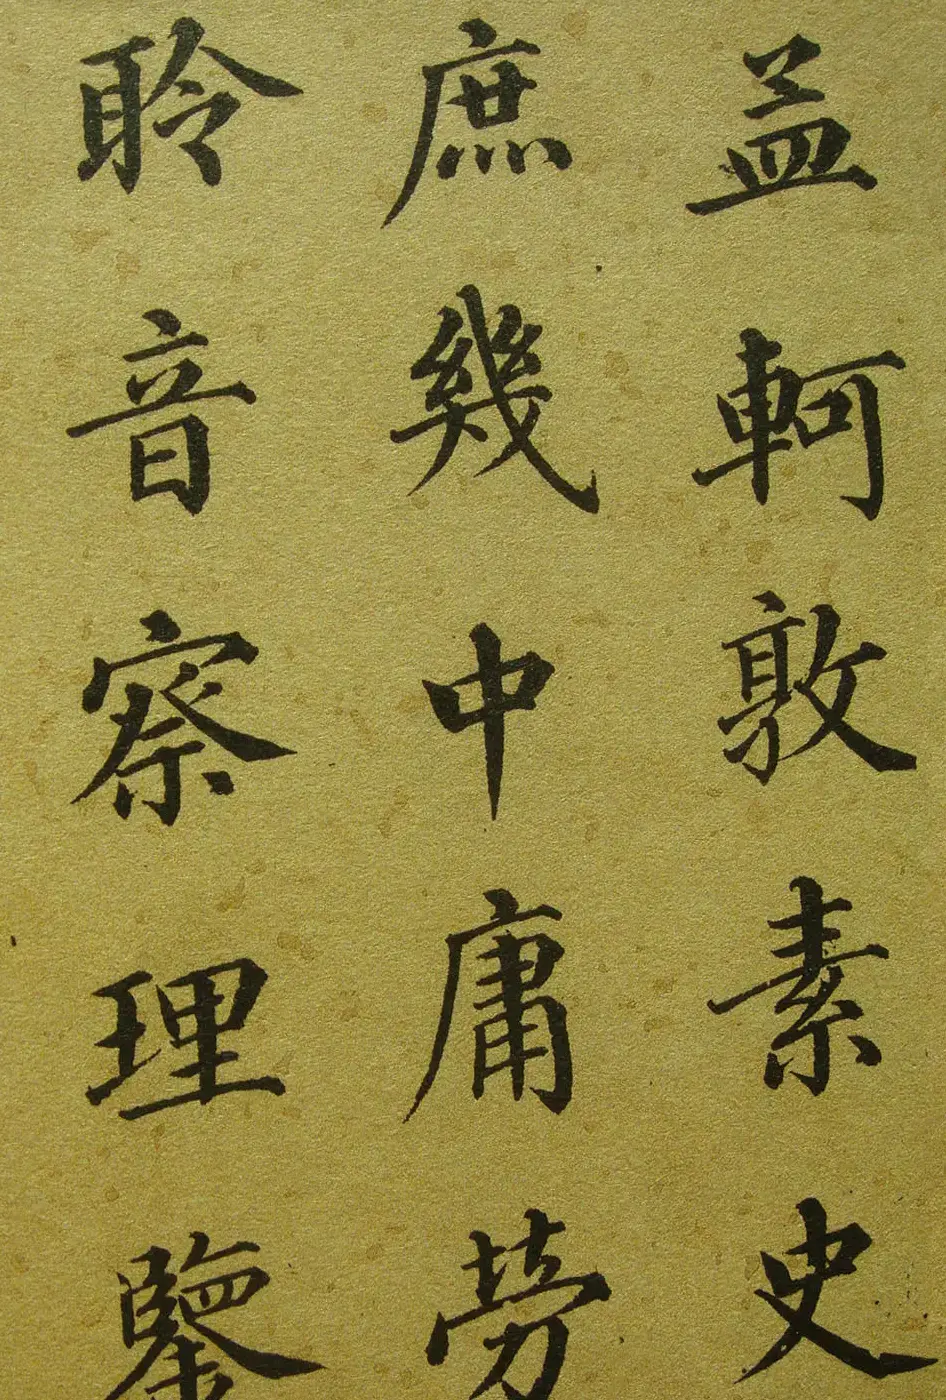 孟軻敦素史
庶幾中庸勞
聆音察理鑒